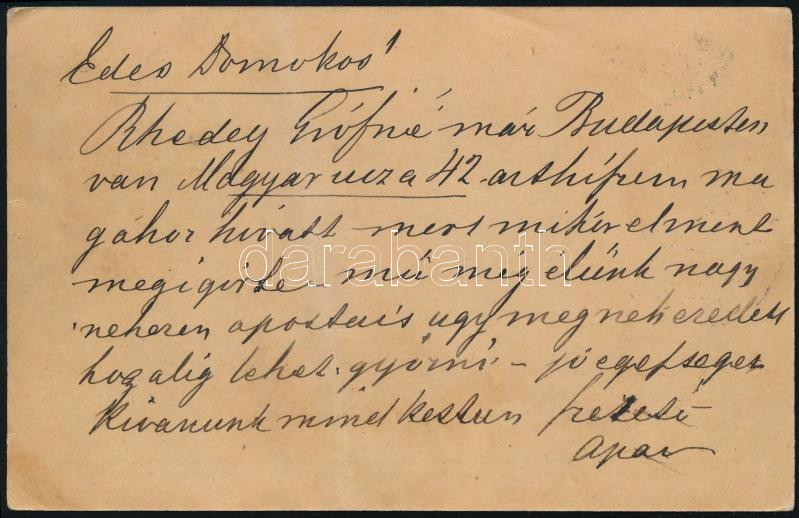 Edes Domokos!
Rhedey Grófné már Budapesten
van Magyar ucza 42 azt hifzem ma
gához hivatt mert mikór elment
megigirte – mü míg élünk nagy
nehezen a posta is ugy megnehezedett
hogy alig lehet győzni – jó egefseget
Kivánunk mind kettun fzeretö
Apad
darabanth